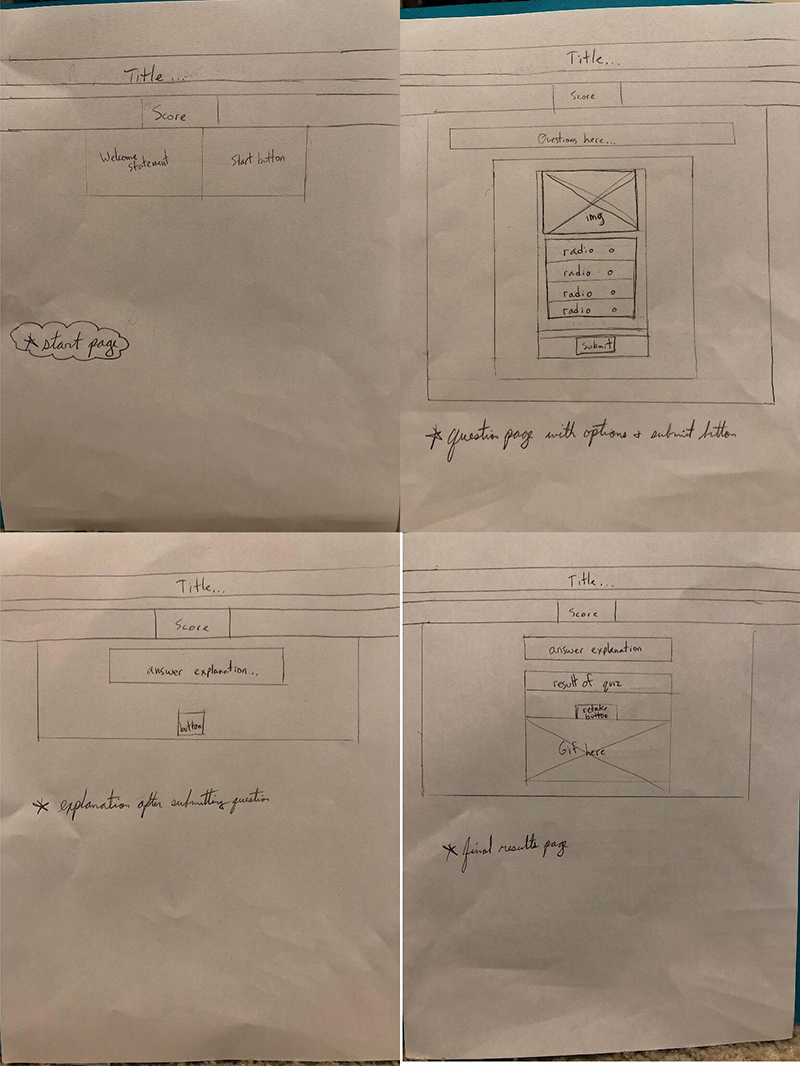 Title...
Score
Welcome
statement
Start button
* start page
Title...
Score
Questions here...
img
radio
radio
radio
radio
submit
* question page with options + submit button
Title...
Score
answer explanation...
button
* explanation after submitting question
Title...
Score
answer explanation
result of quiz
retake
button
Gif here
* final results page